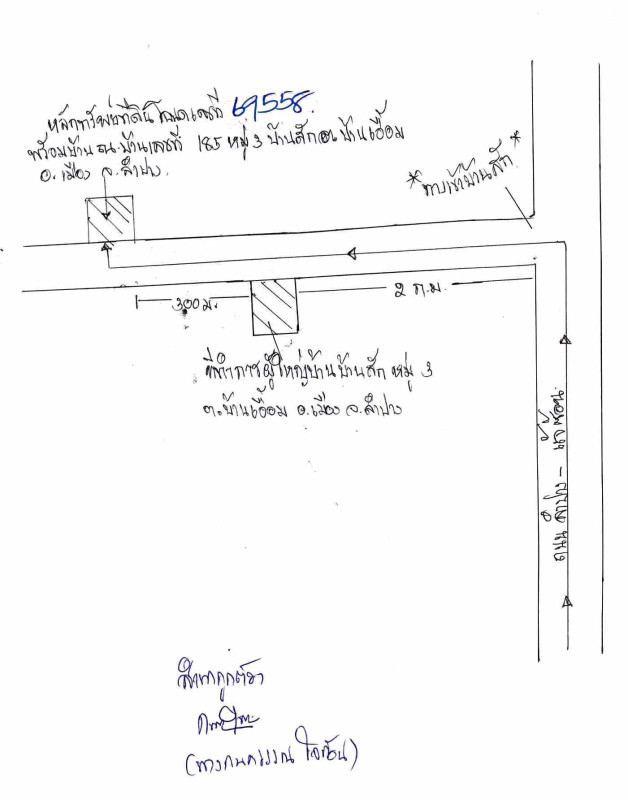 หลักทรัพย์ที่ดินโฉนดเลขที่ 69558
พร้อมบ้าน บ้านเลขที่ 185 หมู่ 3 บ้านสัก ต.บ้านเอื้อม
อ.เมือง จ.ลำปาง.
*ทางเข้าบ้านสัก*
300 ม.
2 ก.ม.
ที่ทำการผู้ใหญ่บ้านบ้านสัก หมู่ 3
ต.บ้านเอื้อม อ.เมือง จ.ลำปาง
ถนน ลำปาง - แจ้ซ้อน
สำเนาถูกต้อง